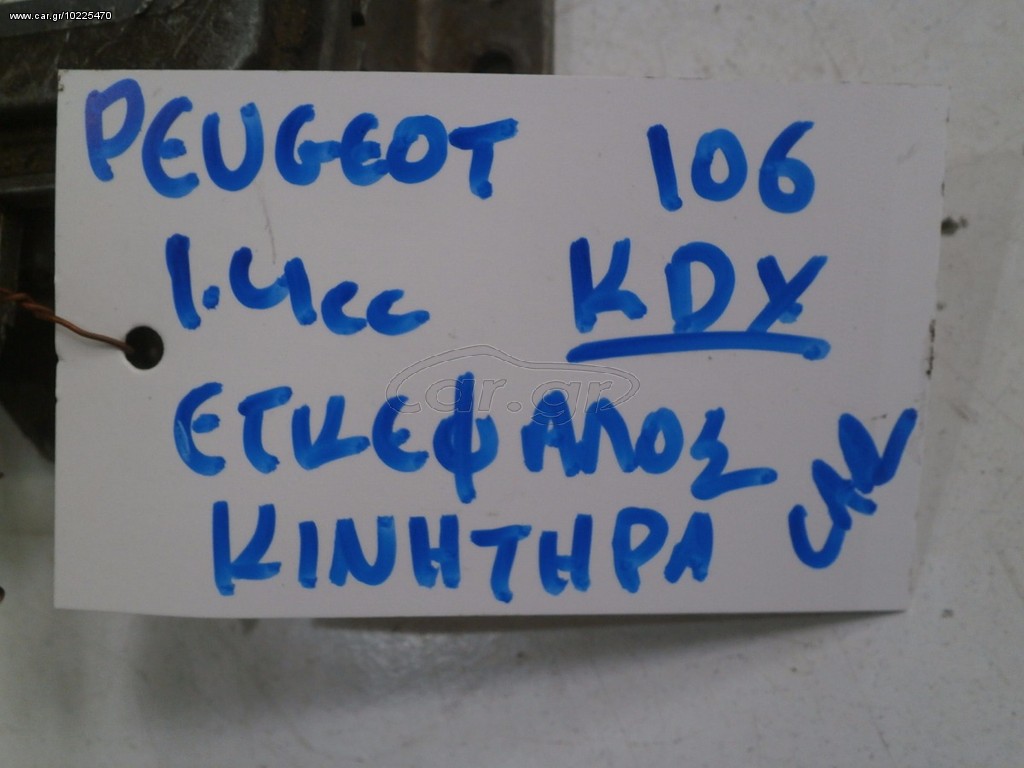 www.car.gr/10225470
PEUGEOT 106
1.4cc KDX
ΕΓΚΕΦΑΛΟΣ
ΚΙΝΗΤΗΡΑ
car.gr